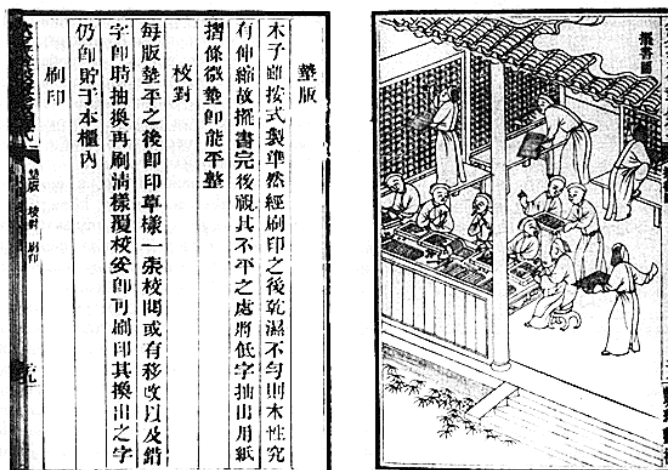 擺書圖
墊版
木子雖按式製準然經刷印之後乾濕不勻則木性究
有伸縮故擺書完後覷其不平之處將低字抽出用紙
摺條微墊卽能平整
校對
每版墊平之後卽印草樣一張校閱或有移改以及錯
字卽時抽換再刷清樣覆校妥卽可刷印其換出之字
仍卽貯于本櫃內
刷印
墊版 校對 刷印